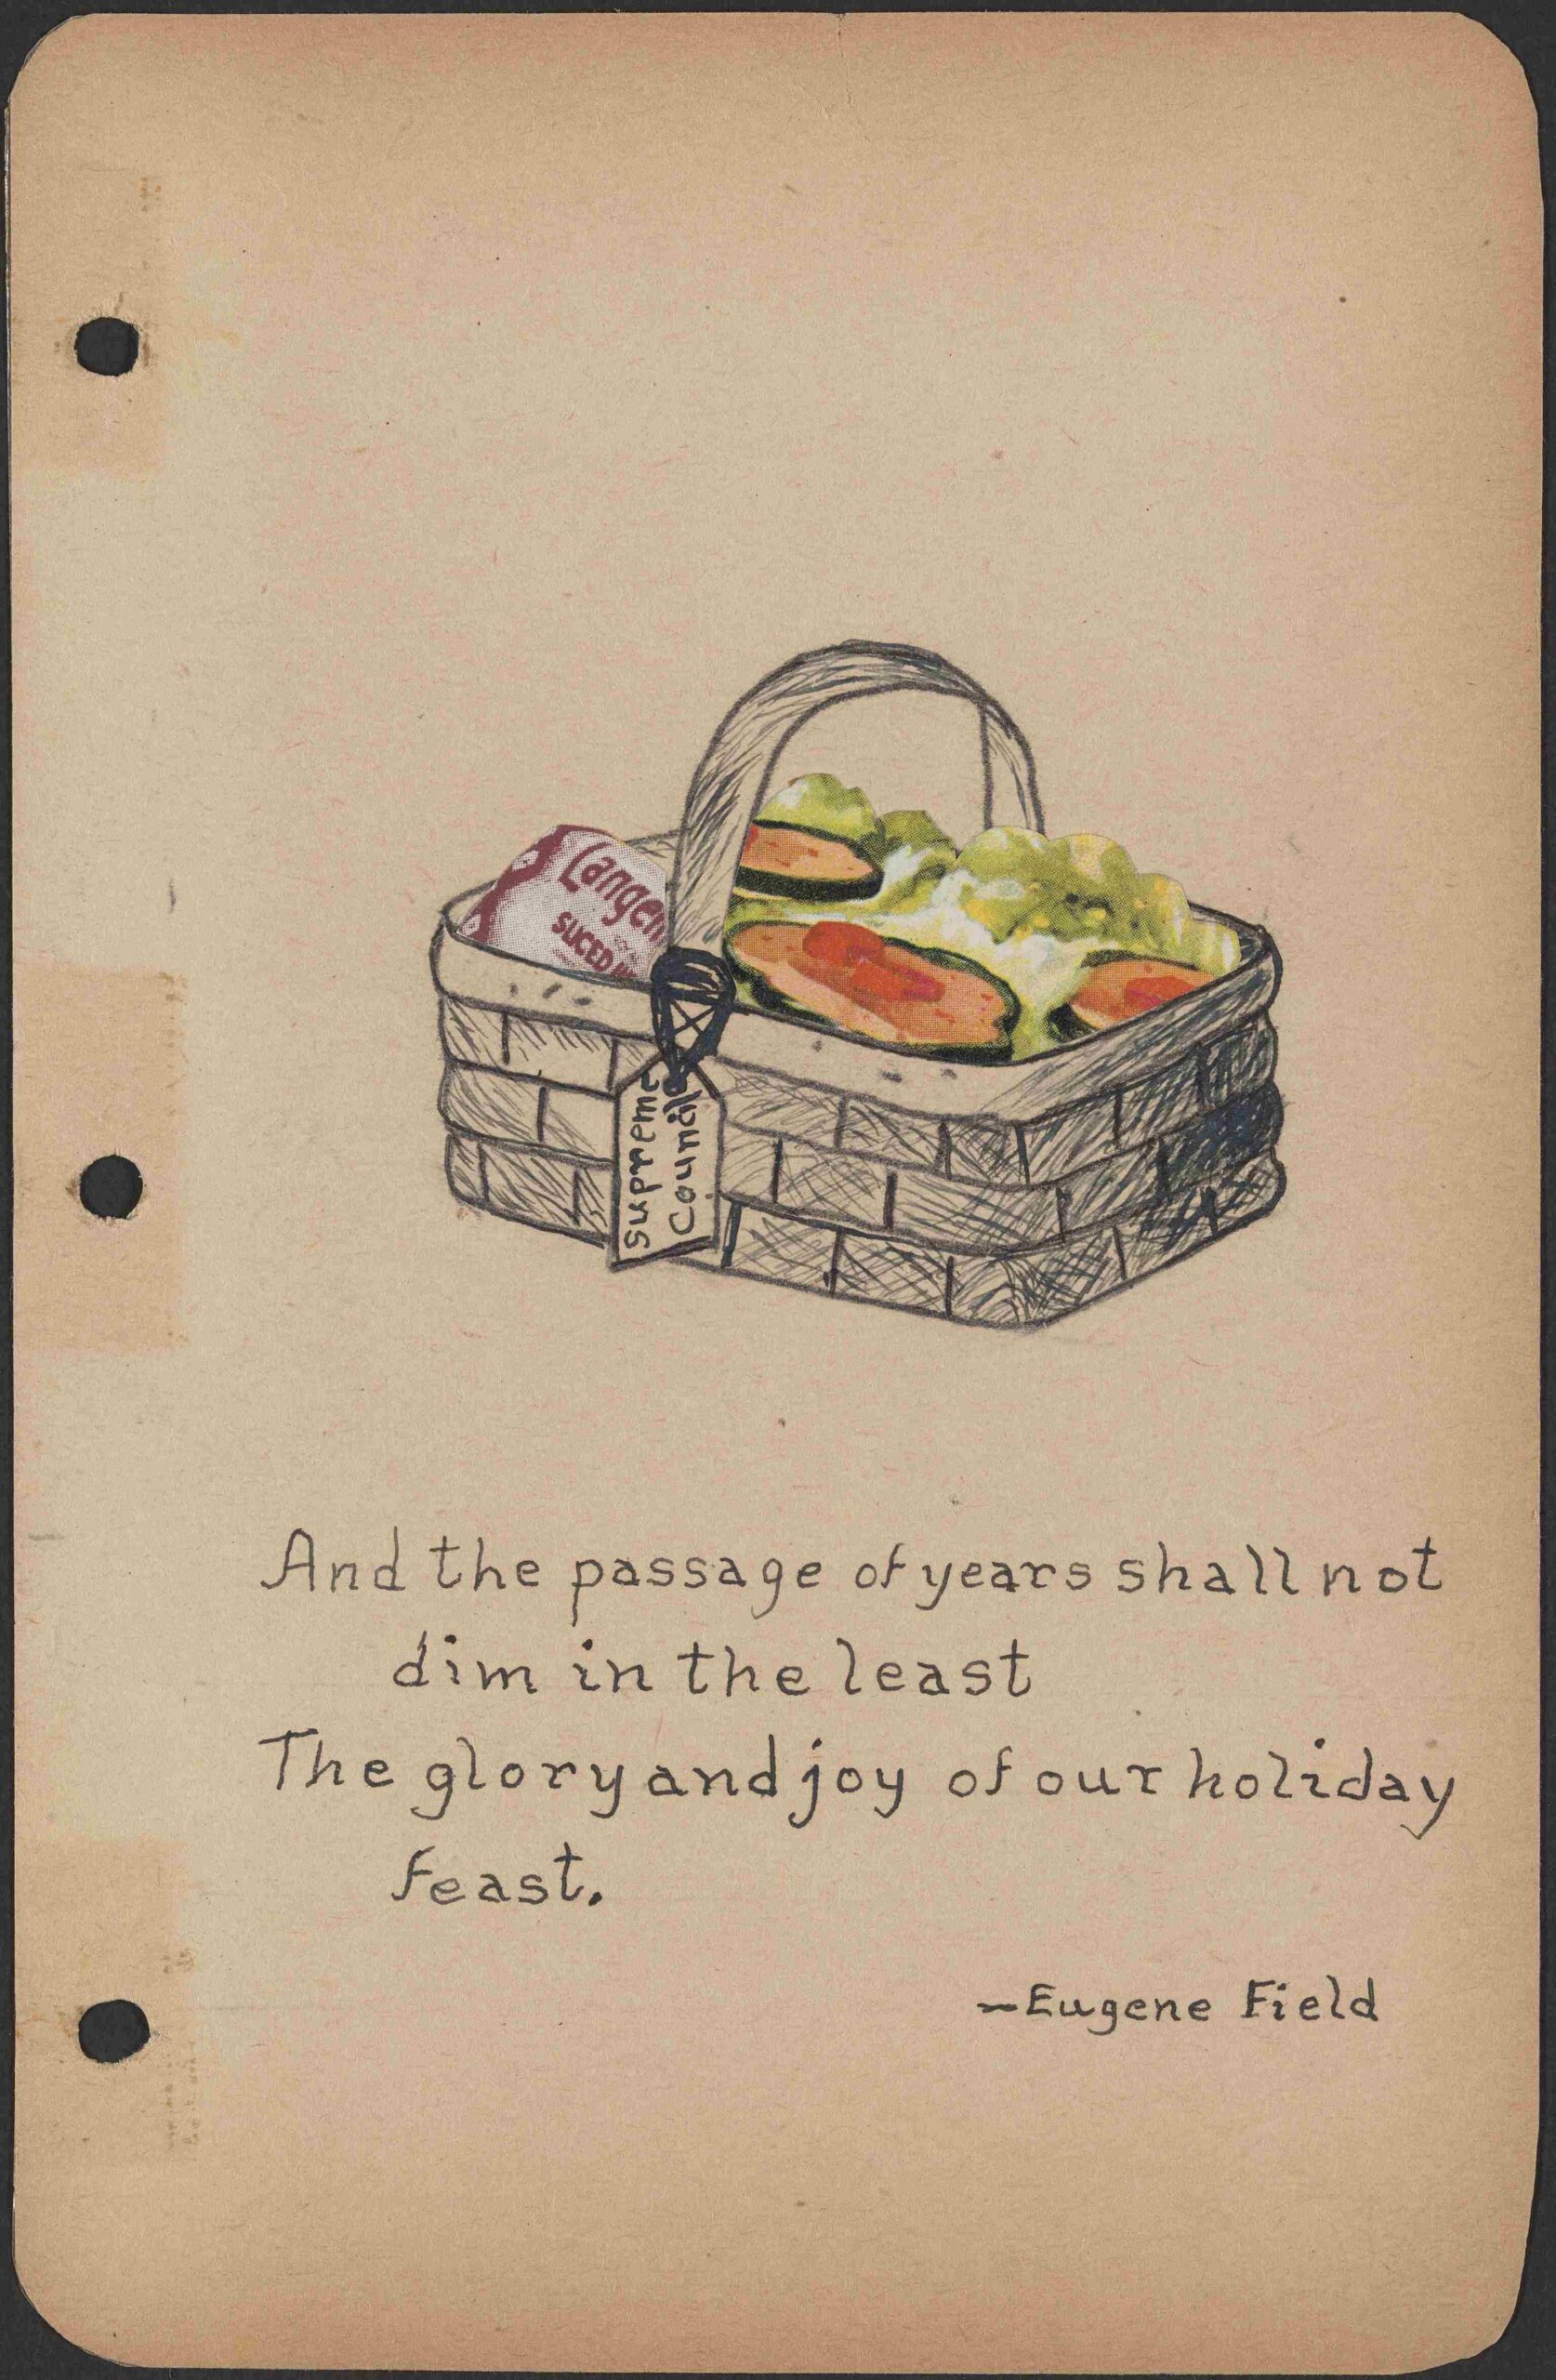 SLICED
supreme
council
And the passage of years shall not
dim in the least
The glory and joy of our holiday
feast.
—Eugene Field